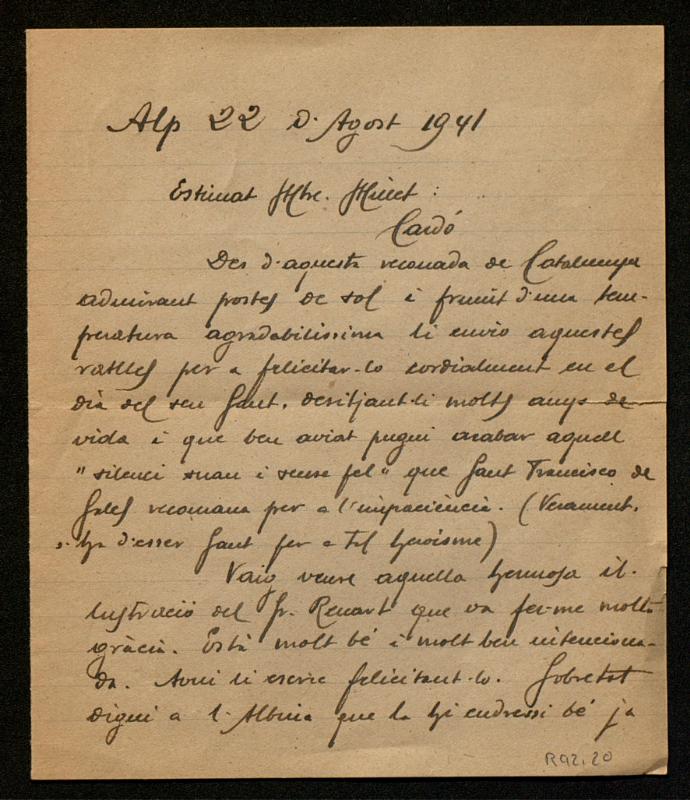 Alp 22 d'Agost 1941
Estimat Mtre. Millet :
Cardó
Des d'aquesta reconada de Catalunya
admirant postes de sol i fruint d'una tem-
peratura agradabilissima li envio aquestes
ratlles per a felicitar-lo cordialment en el
dia del seu Sant, desitjant-li molts anys de
vida i que ben aviat pugui acabar aquell
"silenci suau i sense fel" que Sant Francisco de
Sales recomana per a l'impaciència. (Verament,
s'ha d'esser Sant per a tal heroisme)
Vaig veure aquella hermosa il-
lustració del Sr. Renart que va fer-me molta
gràcia. Està molt bé i molt ben intenciona-
da. Avui li escric felicitant-lo. Sobretot
digui a l'Albina que la hi endressi bé ja
R92,20